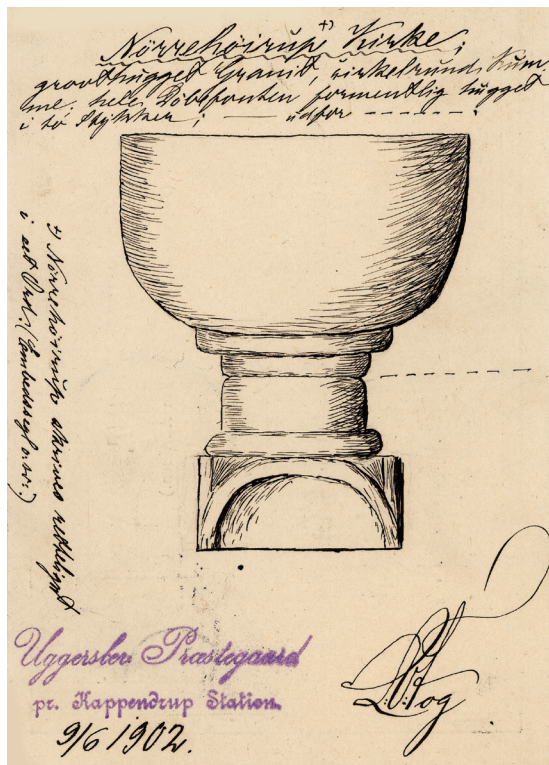 Nörrehöirup +) Kirke;
groovthugget Granit, cirkelrund Kum-
me, hele Döbefonten formentlig hugget
i to Stykker; — udfor - - - - - -.
+) Nörrehöirup skrives retteligst
i eet Ord. (Embedssegl o.s.v.)
Uggerslev Præstegaard
pr. Kappendrup Station.
9/6 1902.